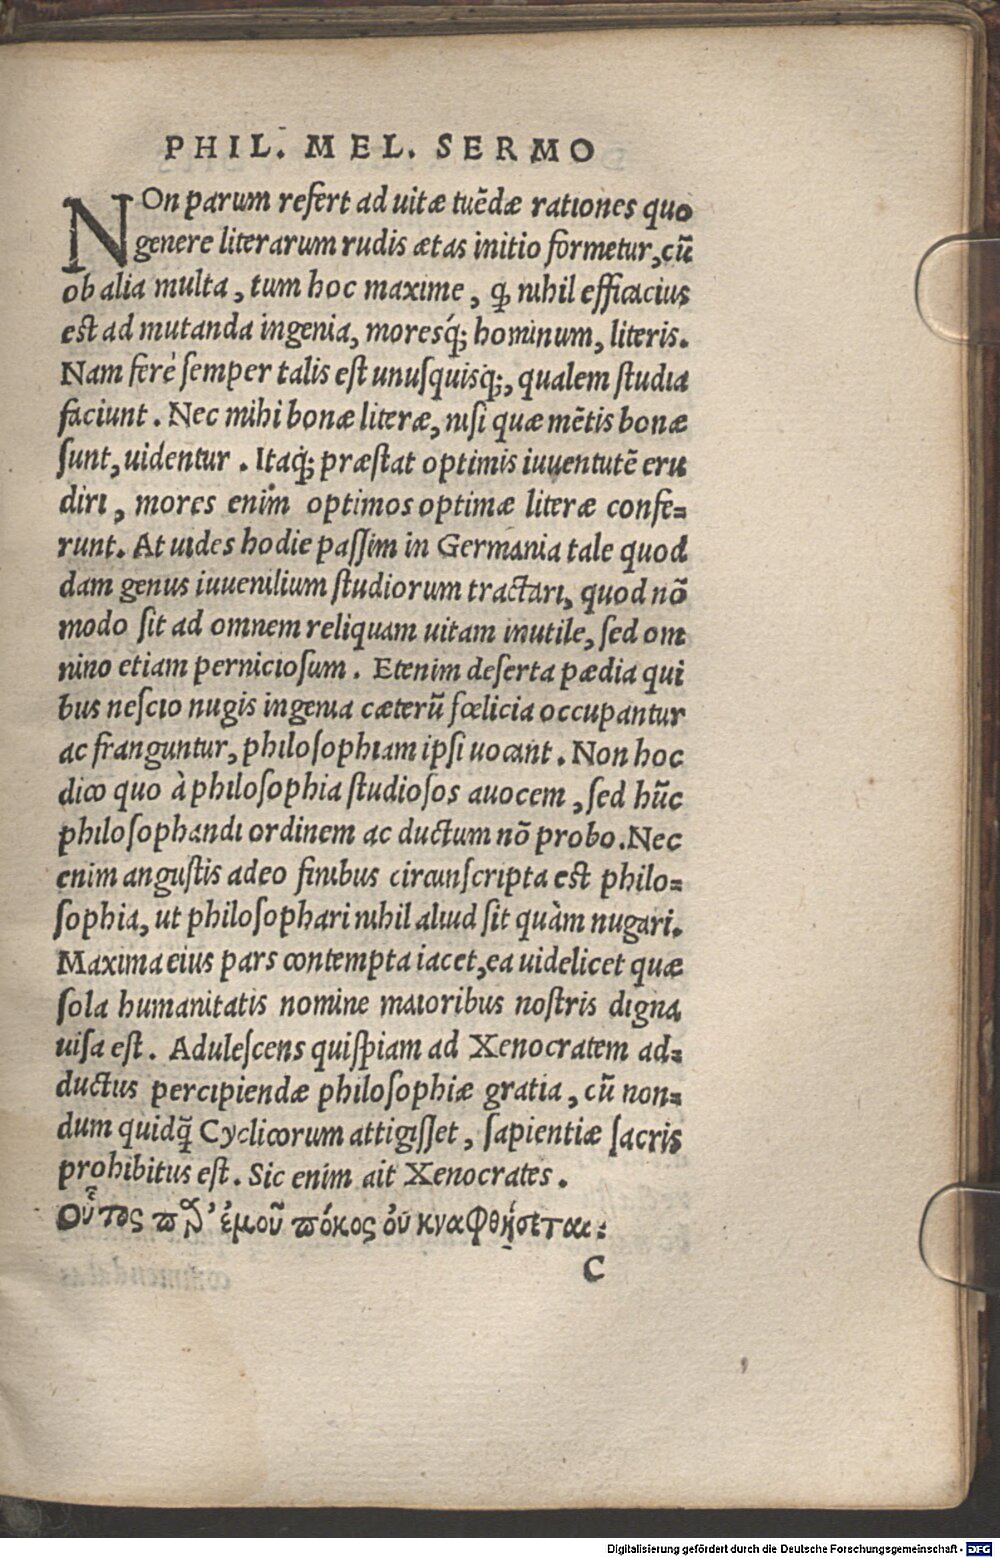 PHIL. MEL. SERMO
NOn parum refert ad uitæ tuẽdæ rationes quo
genere literarum rudis ætas initio formetur, cũ
ob alia multa, tum hoc maxime, ꝙ nihil efficacius
est ad mutanda ingenia, moresq́; hominum, literis.
Nam ferè semper talis est unusquisq;, qualem studia
faciunt. Nec mihi bonæ literæ, nisi quæ mẽtis bonæ
sunt, uidentur. Itaq; præstat optimis iuuentutẽ eru
diri, mores enim optimos optimæ literæ confe=
runt. At uides hodie paſſim in Germania tale quod
dam genus iuuenilium studiorum tractari, quod nõ
modo sit ad omnem reliquam uitam inutile, sed om
nino etiam perniciosum. Etenim deserta pædia qui
bus nescio nugis ingenia cæterũ fœlicia occupantur
ac franguntur, philosophiam ipsi uocant. Non hoc
dico quo à philosophia studiosos auocem, sed hũc
philosophandi ordinem ac ductum nõ probo. Nec
enim angustis adeo finibus circunscripta est philo=
sophia, ut philosophari nihil aliud sit quàm nugari.
Maxima eius pars contempta iacet, ea uidelicet quæ
sola humanitatis nomine maioribus nostris digna
uisa est. Adulescens quispiam ad Xenocratem ad=
ductus percipiendæ philosophiæ gratia, cũ non=
dum quidq̃ Cyclicorum attigisset, sapientiæ sacris
prohibitus est. Sic enim ait Xenocrates.
Οὗτος παρ' ἐμοῦ πόκος οὐ κναφθήσεται:
C
Digitalisierung gefördert durch die Deutsche Forschungsgemeinschaft - DFG